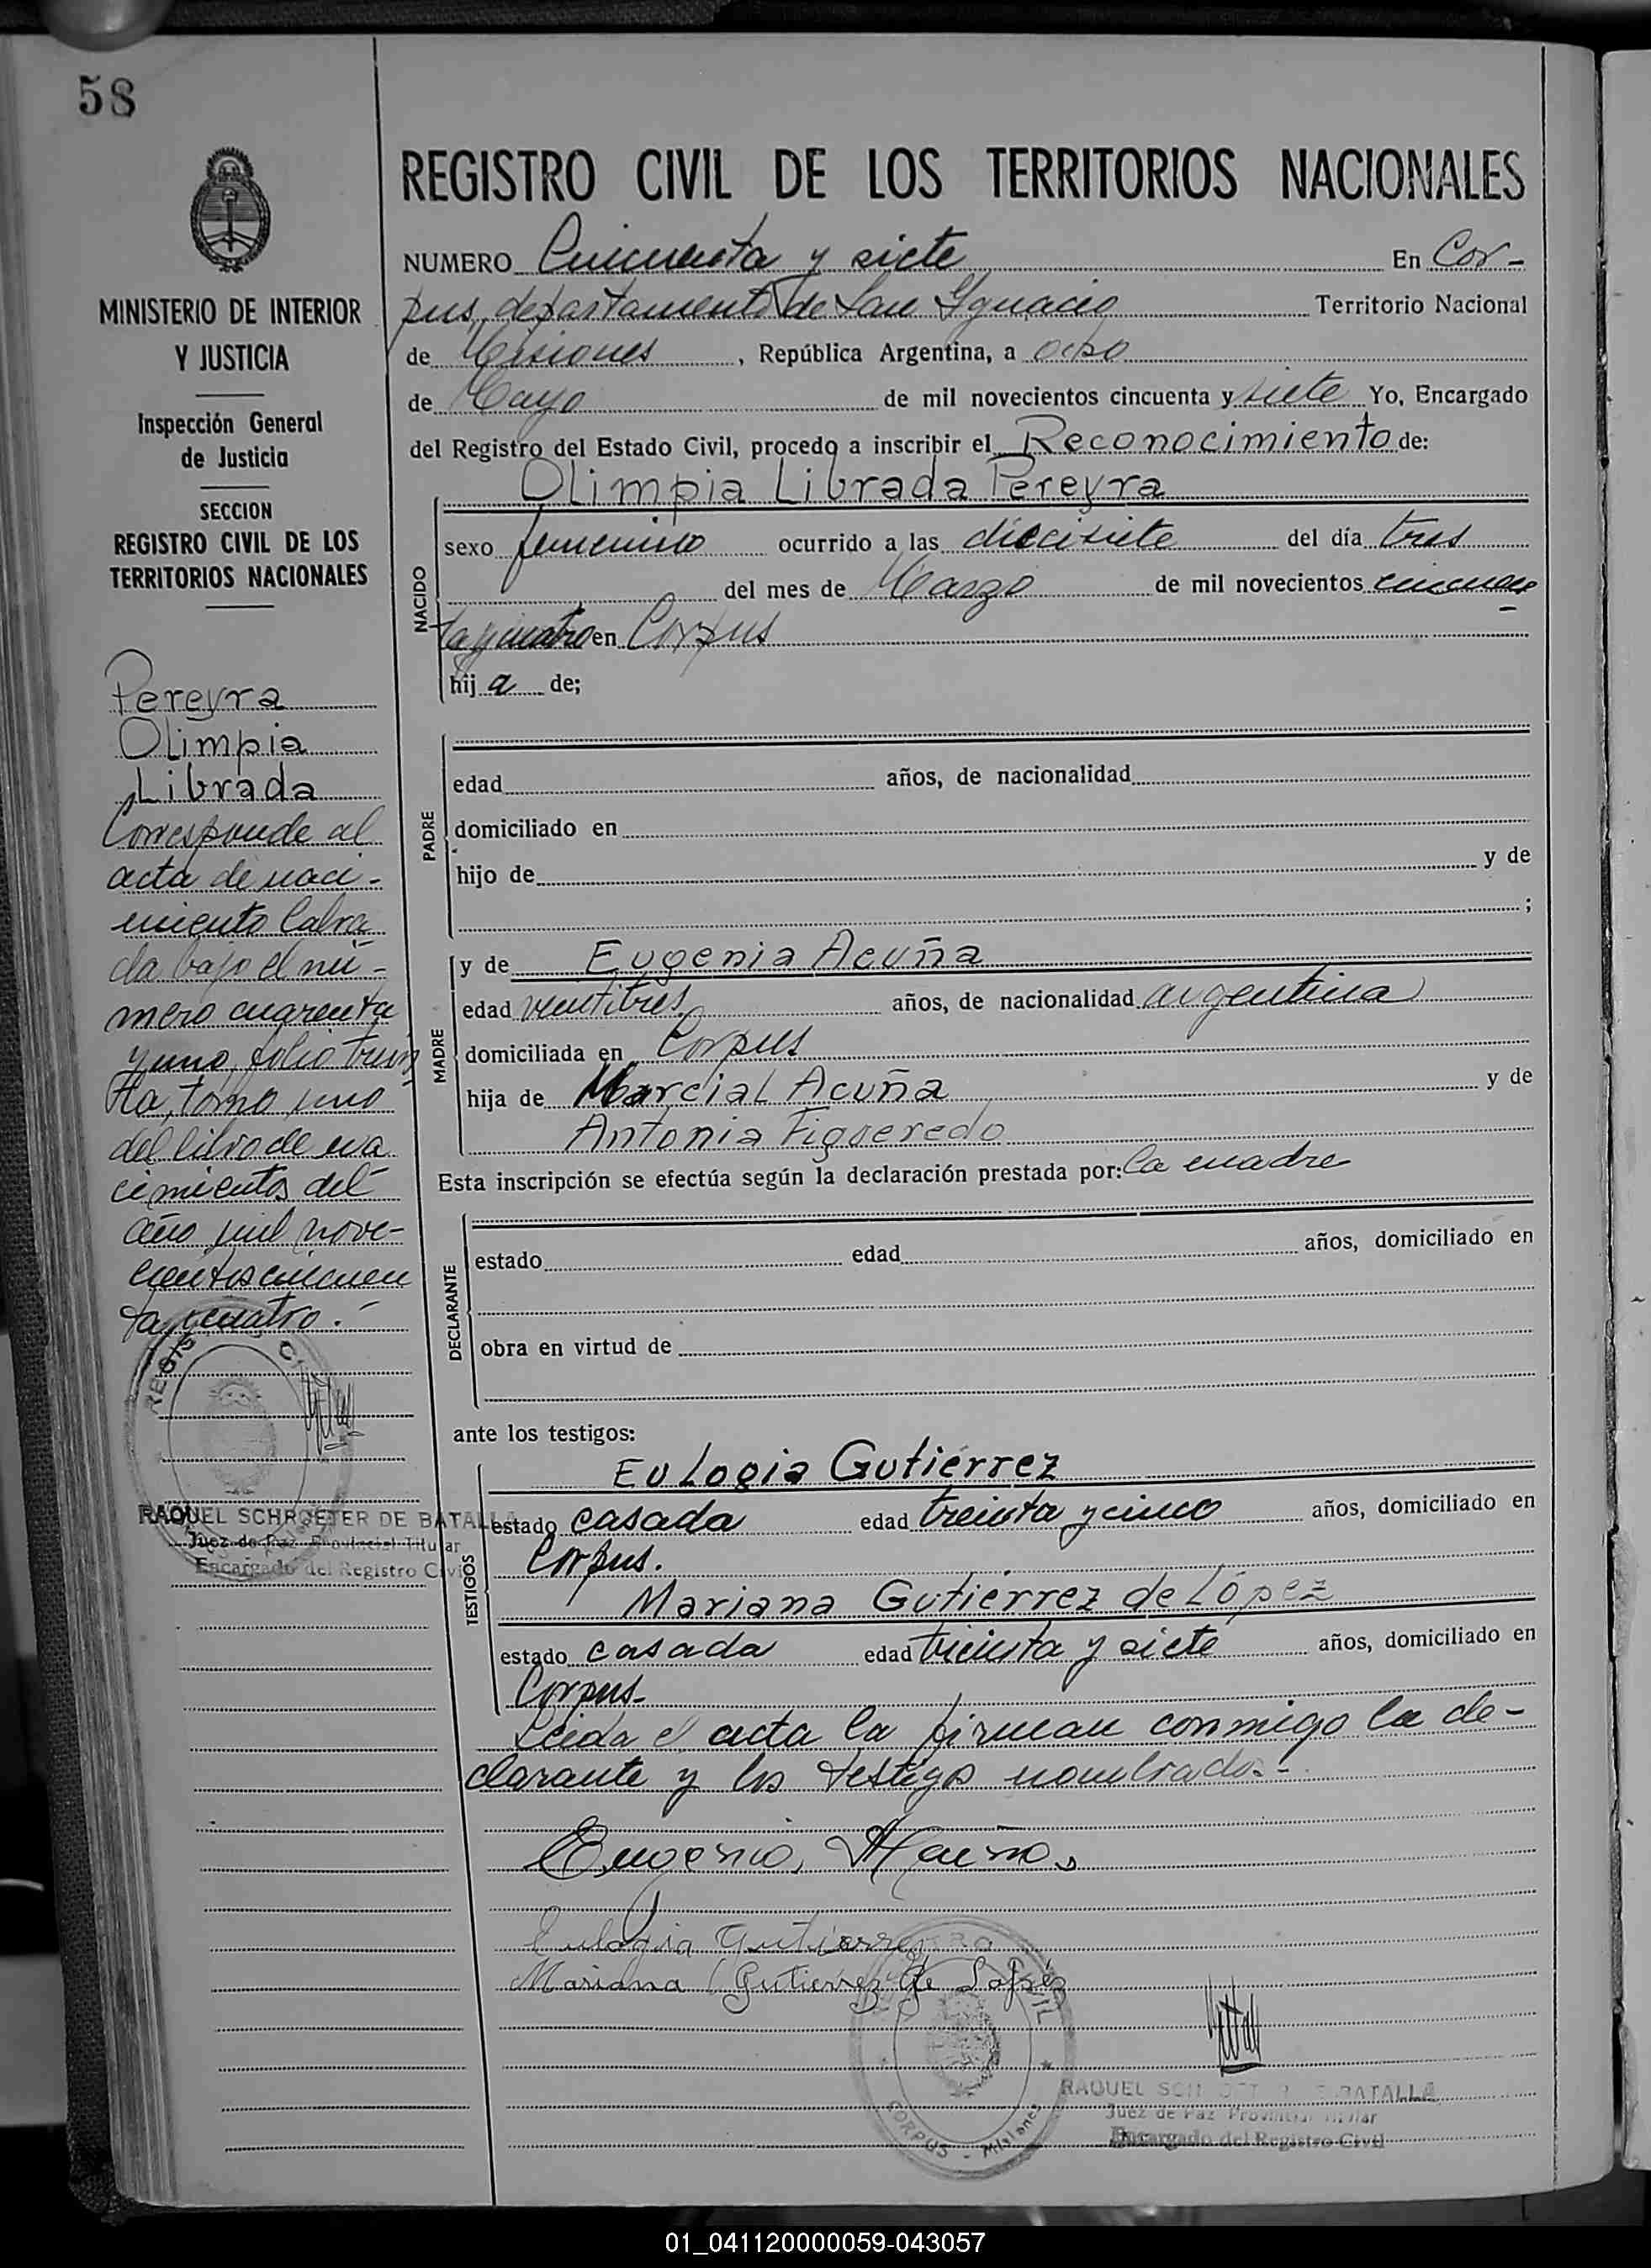 58
MINISTERIO DE INTERIOR
Y JUSTICIA
Inspección General
de Justicia
SECCION
REGISTRO CIVIL DE LOS
TERRITORIOS NACIONALES
Pereyra
Olimpia
Librada
Corresponde al
acta de naci-
miento labra
da bajo el nú-
mero cuarenta
y uno, folio trein
ta, tomo uno
del libro de na
cimientos del
año mil nove-
cientos cincuen
ta y cuatro.-
RAQUEL SCHROETER DE BATALLA
Juez de Paz Provincial Titular
Encargado del Registro Civil
REGISTRO CIVIL DE LOS TERRITORIOS NACIONALES
NUMERO Cincuenta y siete En Cor-
pus, departamento de San Ygnacio Territorio Nacional
de Misiones, República Argentina, a ocho
de Mayo de mil novecientos cincuenta y siete Yo, Encargado
del Registro del Estado Civil, procedo a inscribir el Reconocimiento de:
Olimpia Librada Pereyra
NACIDO
sexo femenino ocurrido a las diecisiete del día tres
del mes de Marzo de mil novecientos cincuen
ta y cuatro en Corpus
hij a de;
PADRE
edad años, de nacionalidad
domiciliado en
hijo de y de
;
MADRE
y de Eugenia Acuña
edad veintitres años, de nacionalidad argentina
domiciliada en Corpus
hija de Marcial Acuña y de
Antonia Figueredo
Esta inscripción se efectúa según la declaración prestada por: la madre
DECLARANTE
estado edad años, domiciliado en
obra en virtud de
ante los testigos:
TESTIGOS
Eulogia Gutiérrez
estado casada edad treinta y cinco años, domiciliado en
Corpus.
Mariana Gutiérrez de López
estado casada edad treinta y siete años, domiciliado en
Corpus.
Leida el acta la firman conmigo la de-
clarante y los testigos nombrados.-
Eugenia Acuña
Eulogia Gutierrez
Mariana Gutierrez de Lopez
CORPUS - Misiones
RAQUEL SCHROETER DE BATALLA
Juez de Paz Provincial Titular
Encargado del Registro Civil
01_041120000059-043057